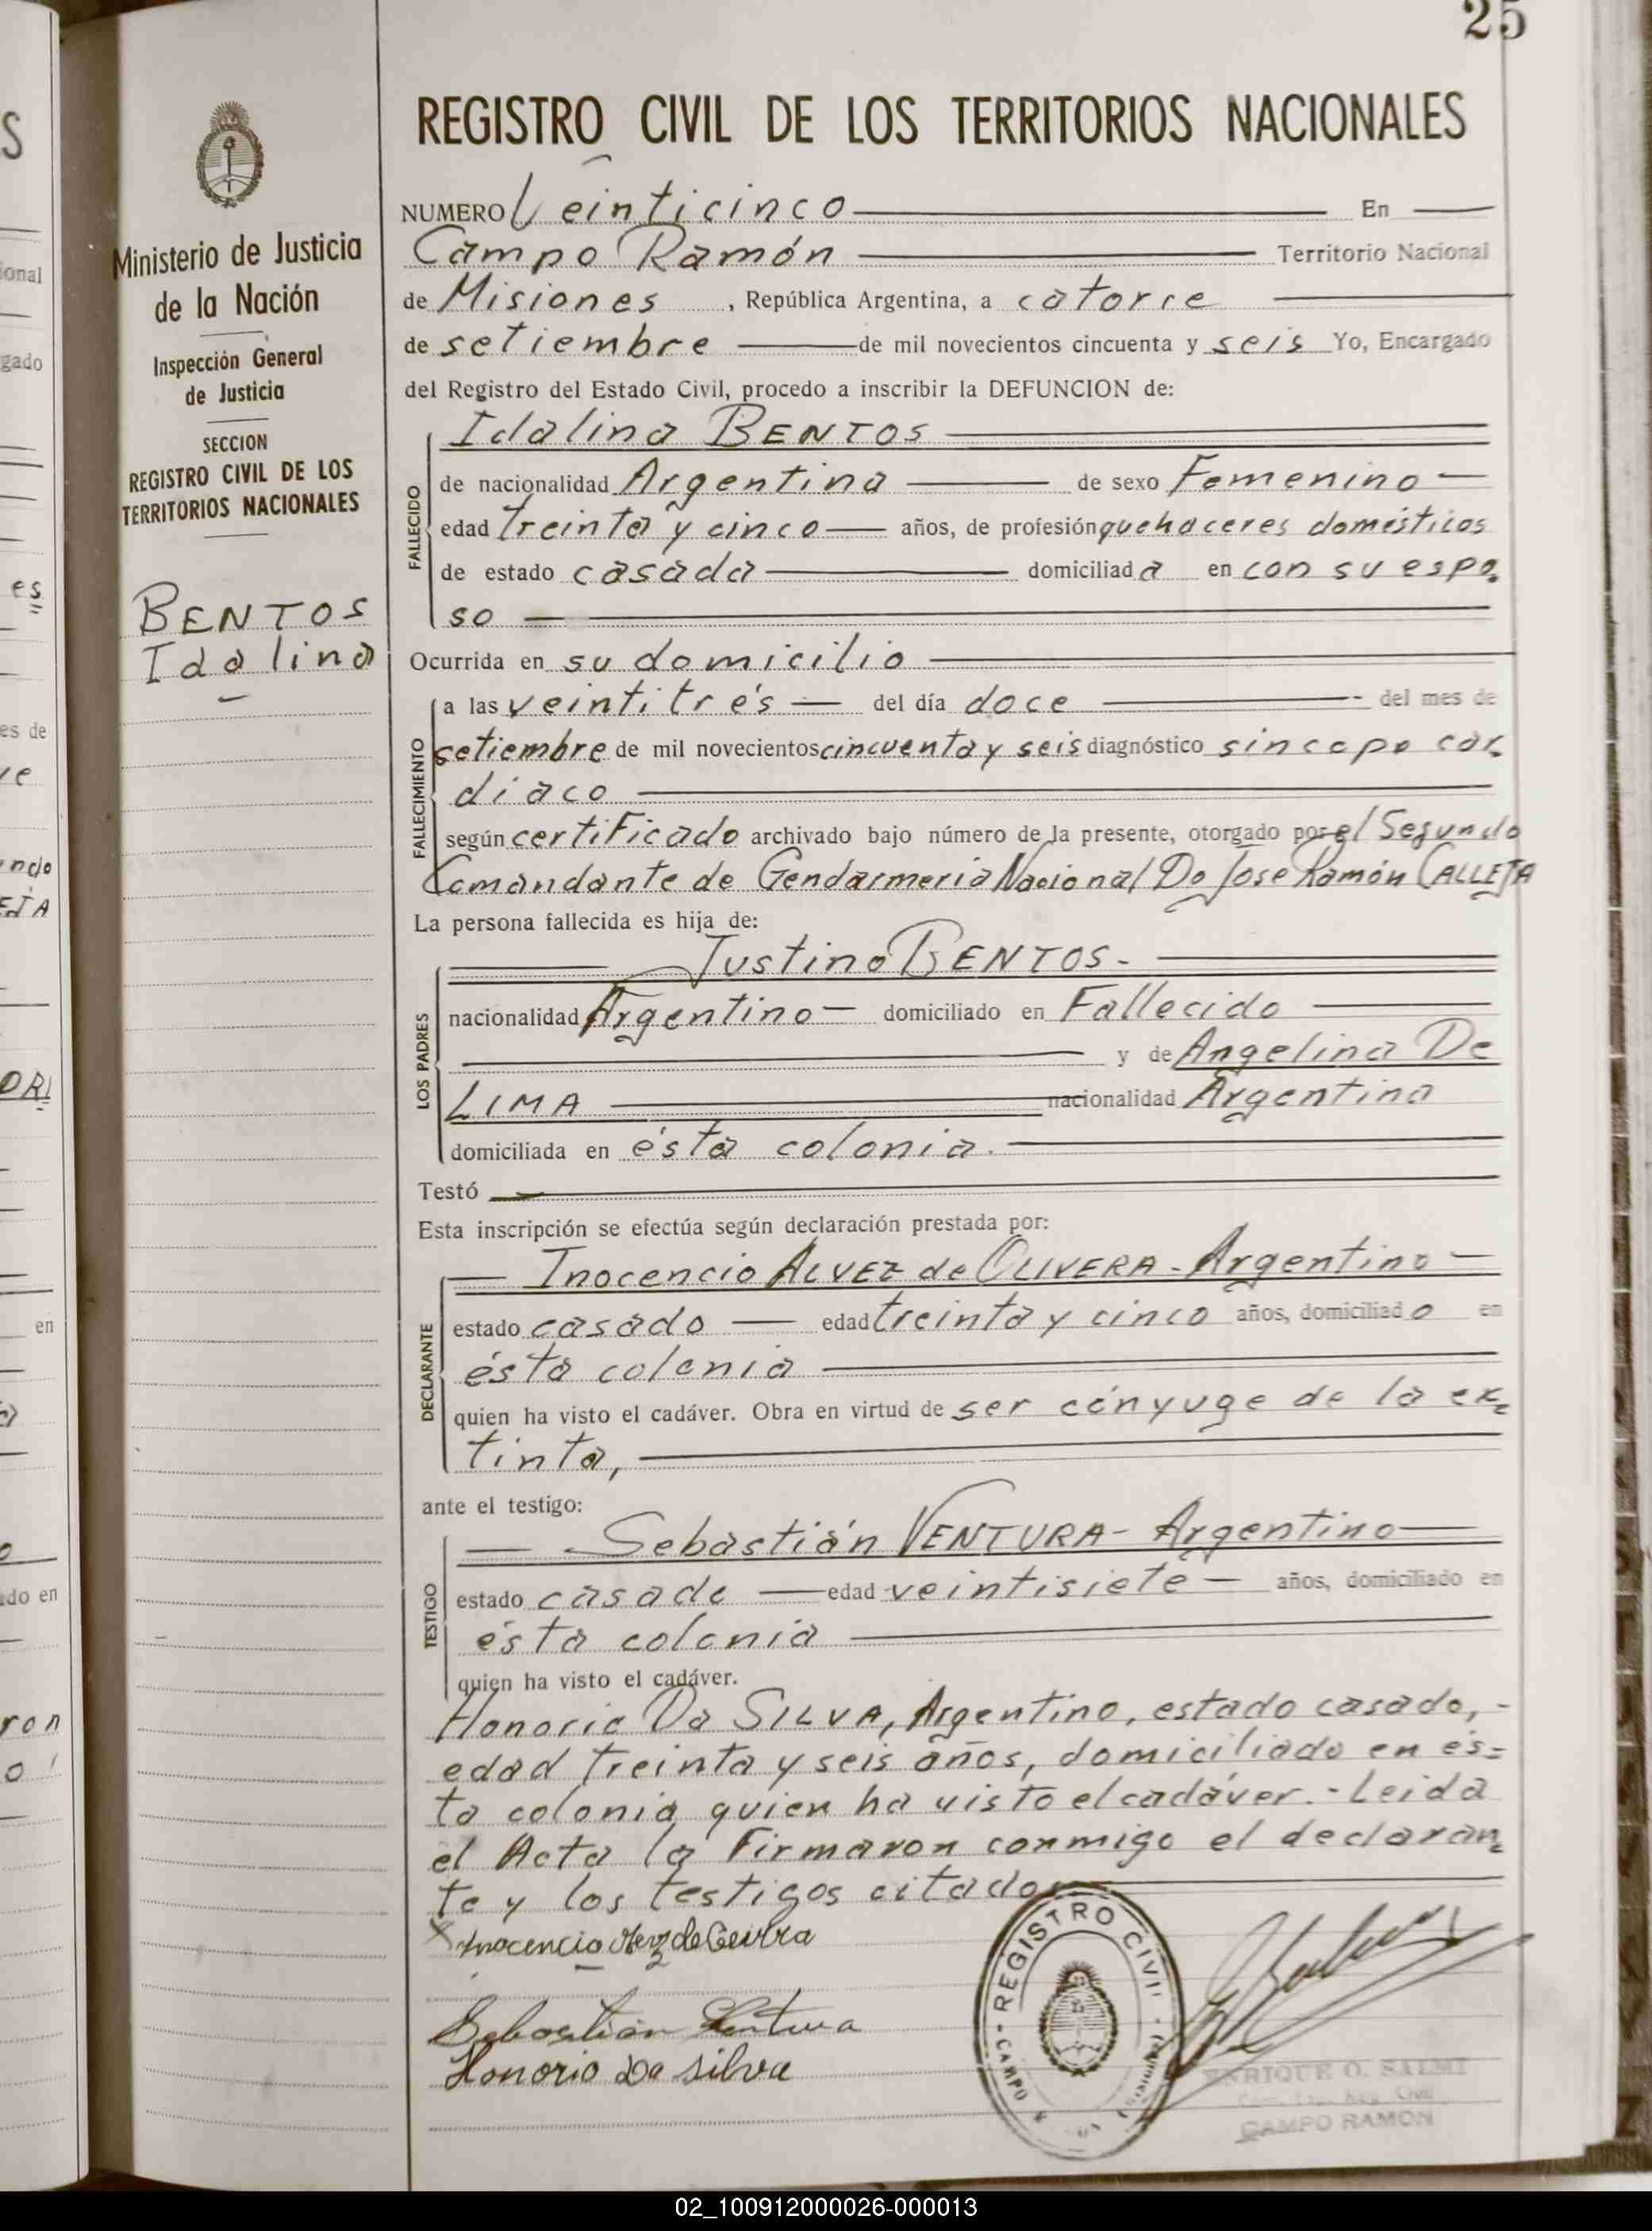 25
REGISTRO CIVIL DE LOS TERRITORIOS NACIONALES
Ministerio de Justicia
de la Nación
Inspección General
de Justicia
SECCION
REGISTRO CIVIL DE LOS
TERRITORIOS NACIONALES
BENTOS
Idalina
NUMERO Veinticinco En
Campo Ramón Territorio Nacional
de Misiones, República Argentina, a catorce
de setiembre de mil novecientos cincuenta y seis Yo, Encargado
del Registro del Estado Civil, procedo a inscribir la DEFUNCION de:
FALLECIDO
Idalina BENTOS
de nacionalidad Argentina de sexo Femenino
edad treinta y cinco años, de profesión quehaceres domésticos
de estado casada domiciliada en con su espo
so
Ocurrida en su domicilio
FALLECIMIENTO
a las veintitrés del día doce del mes de
setiembre de mil novecientos cincuenta y seis diagnóstico sincope car
diaco
según certificado archivado bajo número de la presente, otorgado por el Segundo
Comandante de Gendarmeria Nacional Do Jose Ramón CALLEJA
La persona fallecida es hija de:
LOS PADRES
Justino BENTOS.-
nacionalidad Argentino domiciliado en Fallecido
y de Angelina De
LIMA nacionalidad Argentina
domiciliada en ésta colonia.
Testó
Esta inscripción se efectúa según declaración prestada por:
DECLARANTE
Inocencio ALVEZ de OLIVERA - Argentino
estado casado edad treinta y cinco años, domiciliado en
ésta colonia
quien ha visto el cadáver. Obra en virtud de ser cónyuge de la ex
tinta,
ante el testigo:
TESTIGO
Sebastián VENTURA - Argentino
estado casado edad veintisiete años, domiciliado en
ésta colonia
quien ha visto el cadáver.
Honorio Da SILVA, Argentino, estado casado, -
edad treinta y seis años, domiciliado en és=
ta colonia quien ha visto el cadáver.- Leida
el Acta la Firmaron conmigo el declaran
te y los testigos citados
Inocencio Alvez de
Sebastian Ventura
Honorio Da Silva
REGISTRO CIVIL
CAMPO
ENRIQUE O. SALMI
CAMPO RAMON
02_100912000026-000013